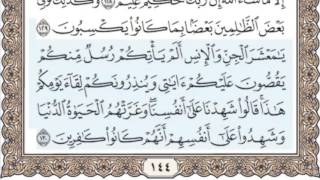 إِلَّا مَا شَاءَ اللَّهُ إِنَّ رَبَّكَ حَكِيمٌ عَلِيمٌ ١٢٨ وَكَذَٰلِكَ نُوَلِّي
بَعْضَ الظَّٰلِمِينَ بَعْضًا بِمَا كَانُوا يَكْسِبُونَ ١٢٩
يَٰمَعْشَرَ الْجِنِّ وَالْإِنسِ أَلَمْ يَأْتِكُمْ رُسُلٌ مِّنكُمْ
يَقُصُّونَ عَلَيْكُمْ ءَايَٰتِي وَيُنذِرُونَكُمْ لِقَاءَ يَوْمِكُمْ
هَٰذَا قَالُوا شَهِدْنَا عَلَىٰ أَنفُسِنَا وَغَرَّتْهُمُ الْحَيَوٰةُ الدُّنْيَا
وَشَهِدُوا عَلَىٰ أَنفُسِهِمْ أَنَّهُمْ كَانُوا كَٰفِرِينَ ١٣٠
١٤٤